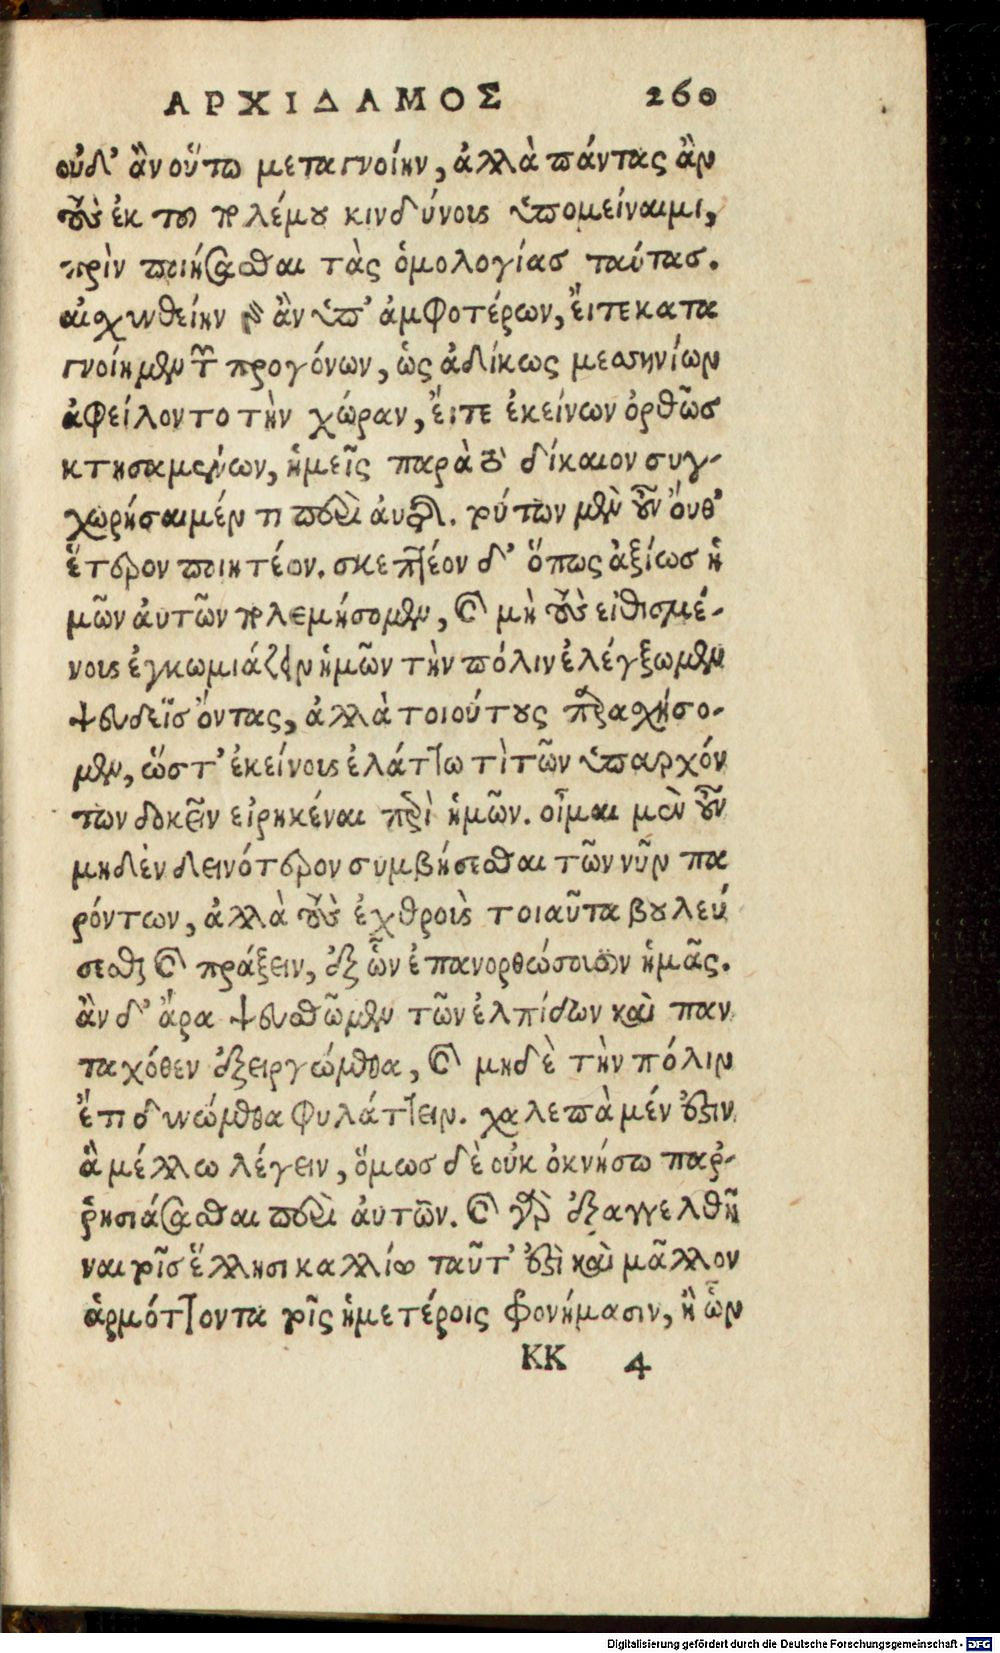 ΑΡΧΙΔΑΜΟΣ 260
οὐδ' ἂν οὕτω μεταγνοίην, ἀλλὰ πάντας ἂν
τοὺς ἐκ τοῦ πολέμου κινδύνους ὑπομείναιμι,
πρὶν ποιήσασθαι τὰς ὁμολογίας ταύτας.
αἰσχυνθείην γὰρ ἂν ὑπ' ἀμφοτέρων, εἴτε κατα
γνοίημεν τῶν προγόνων, ὡς ἀδίκως μεσσηνίων
ἀφείλοντο τὴν χώραν, εἴτε ἐκείνων ὀρθῶς
κτησαμένων, ἡμεῖς παρὰ τὸ δίκαιον συγ-
χωρήσαιμέν τι περὶ αὐτῆς. τούτων μὲν οὖν οὐθ'
ἕτερον ποιητέον. σκεπτέον δ' ὅπως ἀξίως ἡ
μῶν αὐτῶν πολεμήσομεν, καὶ μὴ τοὺς εἰθισμέ-
νους ἐγκωμιάζειν ἡμῶν τὴν πόλιν ἐλέγξωμεν
ψευδεῖς ὄντας, ἀλλὰ τοιούτους παρασχήσο-
μεν, ὥστ' ἐκείνους ἐλάττω τὶ τῶν ὑπαρχόν
των δοκεῖν εἰρηκέναι περὶ ἡμῶν. οἶμαι μὲν οὖν
μηδὲν δεινότερον συμβήσεσθαι τῶν νῦν πα
ρόντων, ἀλλὰ τοὺς ἐχθροὺς τοιαῦτα βουλεύ
σεσθαι καὶ πράξειν, ἐξ ὧν ἐπανορθώσουσιν ἡμᾶς.
ἂν δ' ἄρα ψευσθῶμεν τῶν ἐλπίδων καὶ παν
ταχόθεν ἐξειργώμεθα, καὶ μηδὲ τὴν πόλιν
ἔτι δυνώμεθα φυλάττειν. χαλεπὰ μέν ἐστιν
ἃ μέλλω λέγειν, ὅμως δὲ οὐκ ὀκνήσω παῤ-
ῥησιάσασθαι περὶ αὐτῶν. καὶ γὰρ ἐξαγγελθῆ
ναι τοῖς ἕλλησι καλλίω ταῦτ' ἐστὶ καὶ μᾶλλον
ἁρμόττοντα τοῖς ἡμετέροις φρονήμασιν, ἢ ὧν
KK 4
Digitalisierung gefördert durch die Deutsche Forschungsgemeinschaft - DFG